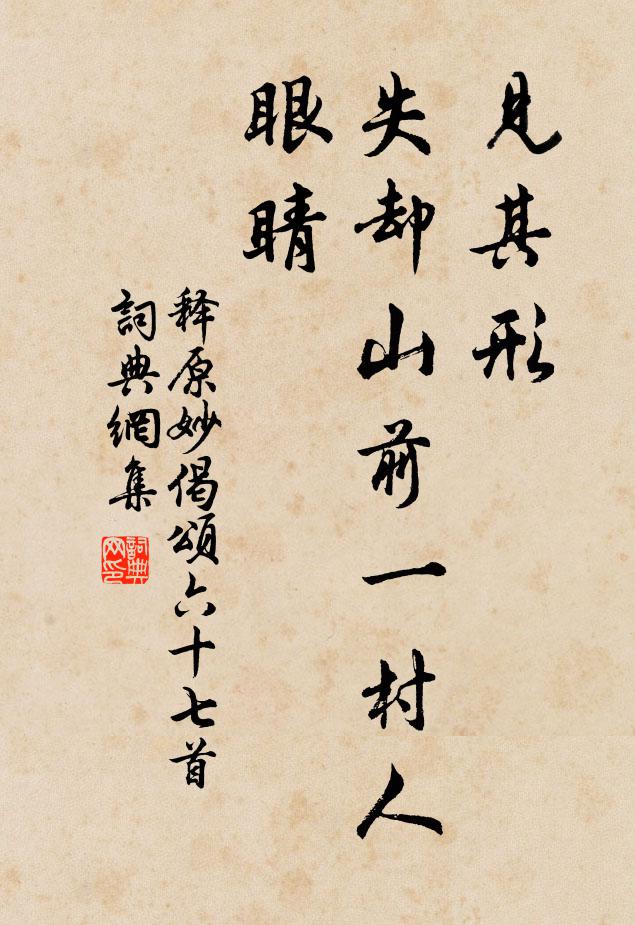 見其形
失却山前一村人
眼睛
释原妙偈頌六十七首
詞典網集
詞典网印